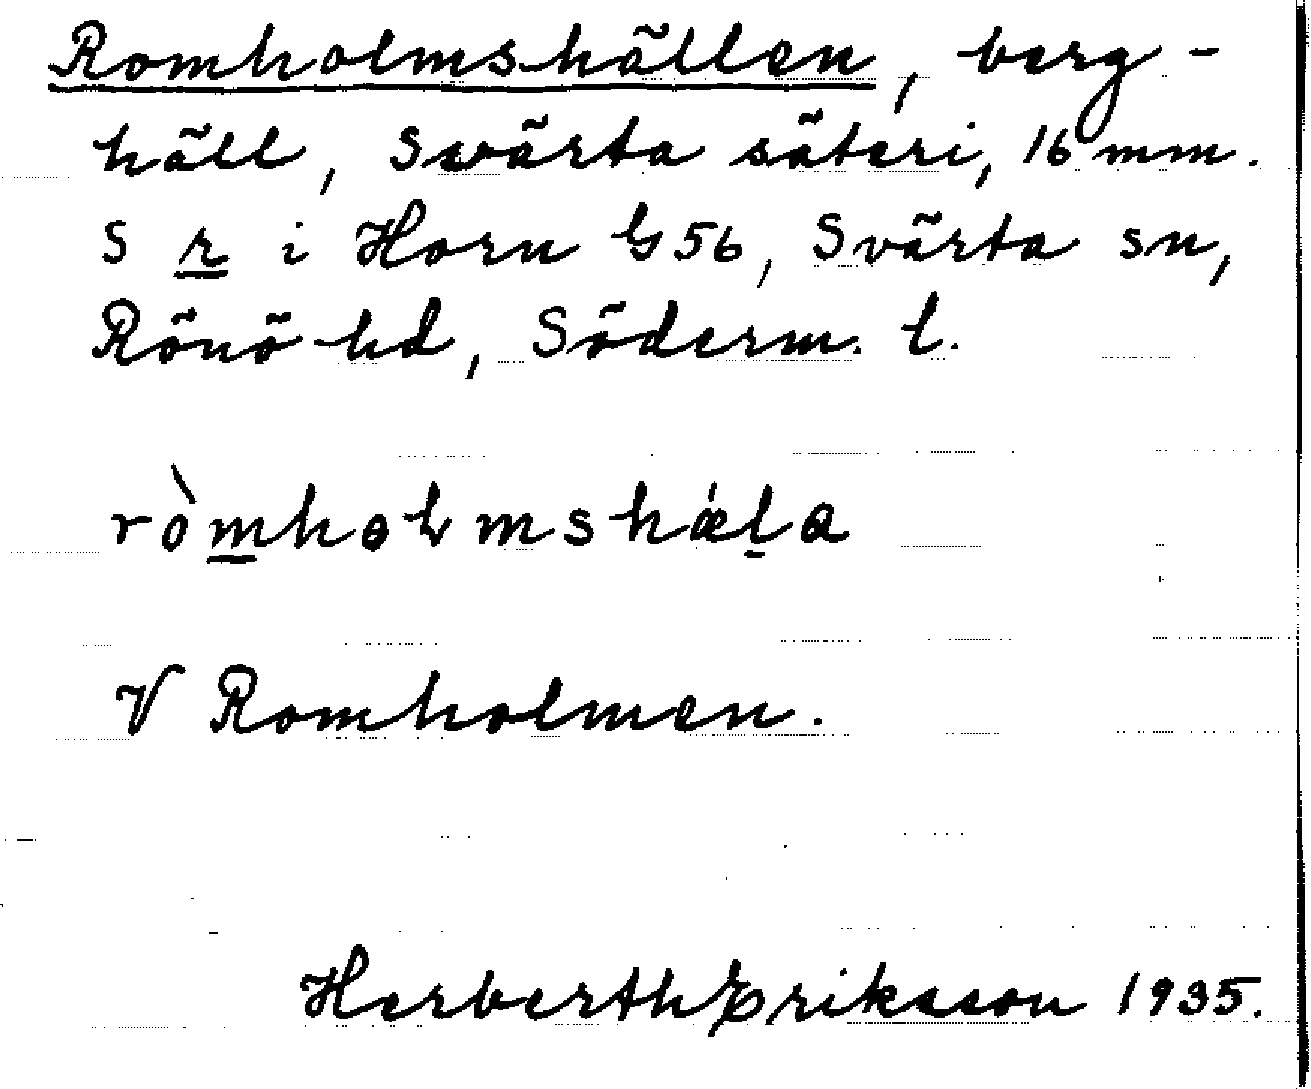 Romholmshällen, berg-
häll, Svärta säteri, 16 mm.
S r i Horn G 56, Svärta sn,
Rönö hd, Söderm. l.
V Romholmen.
Herberth Eriksson 1935.